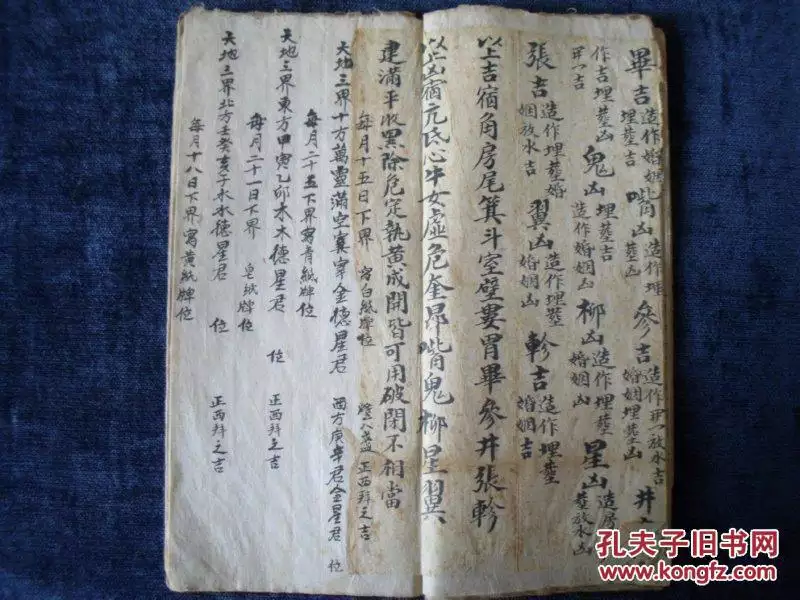 畢吉 造作婚姻埋葬吉 嘴凶 造作埋葬凶 參吉 造作平一放水吉婚姻埋葬凶 井
作吉埋葬凶 鬼凶 埋葬吉造作婚姻凶 柳凶 造作埋葬婚姻凶 星凶 造房葬放水凶
平一吉
張吉 造作埋葬婚姻放水吉 翼凶 造作埋葬婚姻凶 軫吉 造作埋葬婚姻吉
以上吉宿角房尾箕斗室壁婁胃畢參井張軫
以上凶宿亢氐心牛女虛危奎昴嘴鬼柳星翼
建滿平收黑除危定執黃成開皆可用破閉不相當
每月十五日下界 寫白紙牌位 燈八盞 正西拜之吉
天地三界十方萬靈滿空寞宰金德星君 西方庚辛君金星君 位
每月二十五下界寫青紙牌位
天地三界東方甲寅乙卯木木德星君 位 正西拜之吉
每月二十一日下界 皂紙牌位
天地三界北方壬癸亥子水水德星君 位 正西拜之吉
每月十八日下界寫黃紙牌位
孔夫子旧书网
www.kongfz.com